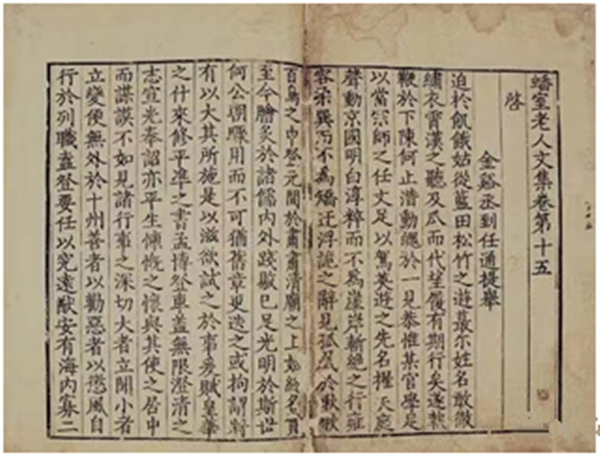 蟠室老人文集卷第十五
啓
金谿丞到任通提舉
迫於飢餓姑從藍田松竹之遊蕞尔姓名敢徹
繡衣霄漢之聽及瓜而代望履有期行矣遂執
鞭於下陳何止潛動魄於一見恭惟某官學足
以當宗師之任文足以駕英遊之先名擢天庭
聲動京國明白淳粹而不為崖岸斬絕之行雍
容柔巽而不為矯迂浮詭之辭見孤鳳於
百鳥之中登之元間於肅肅清廟之上
至今膾炙於諸儒內外踐敭已足光明於斯世
何公圖驟用而不可猶舊章更迭之或拘謂將
有以大其所施是以滋欲試之於事爰賦皇華
之什來修平準之書孟博登車蓋無限澄清之
志宣光奉詔亦平生慷慨之懷與其使之居中
而謀謨不如見諸行事之深切大者立聞小者
立變使無外於十州善者以勸惡者以懲風自
行於列職盍登要任以究遠猷安有海內寡二